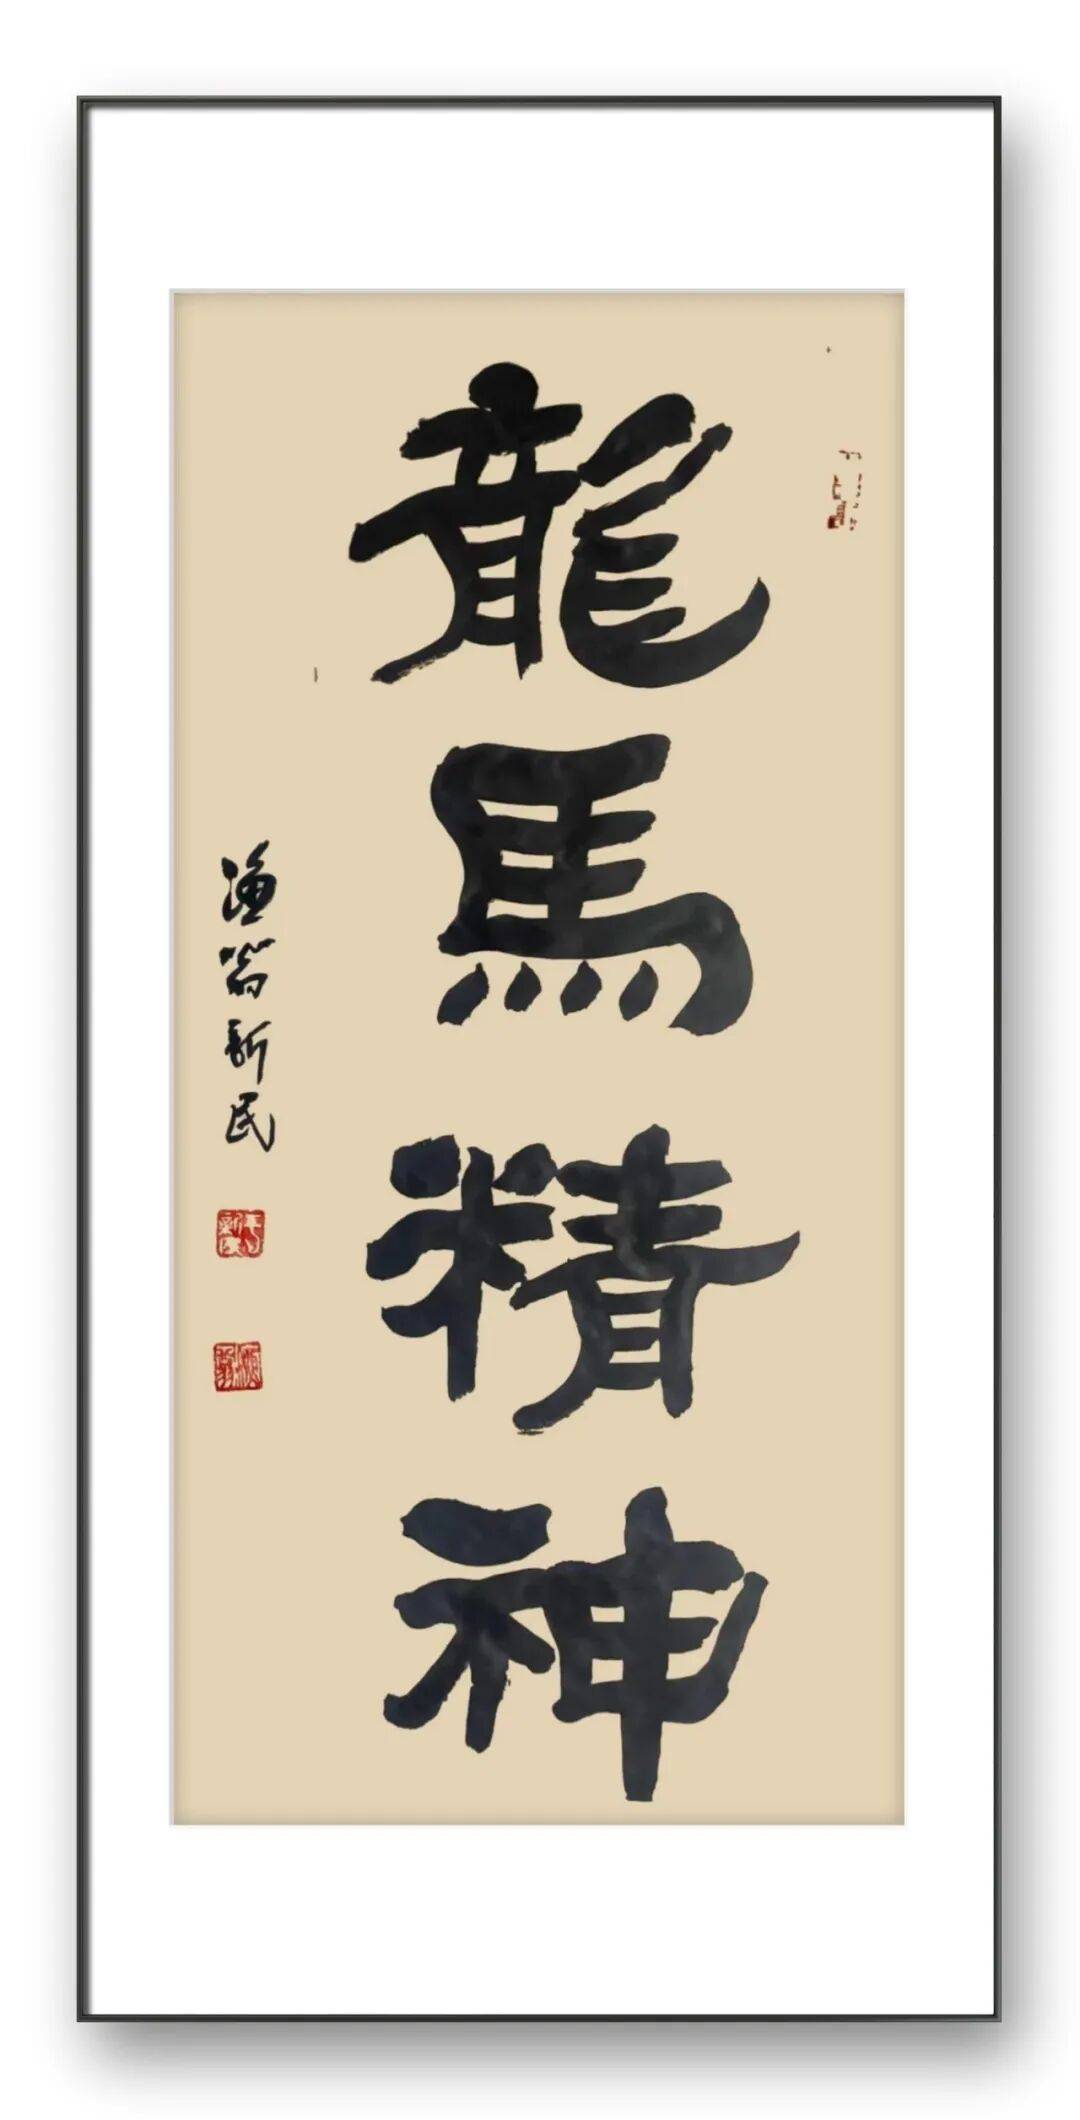 龍馬精神
渔翁新民